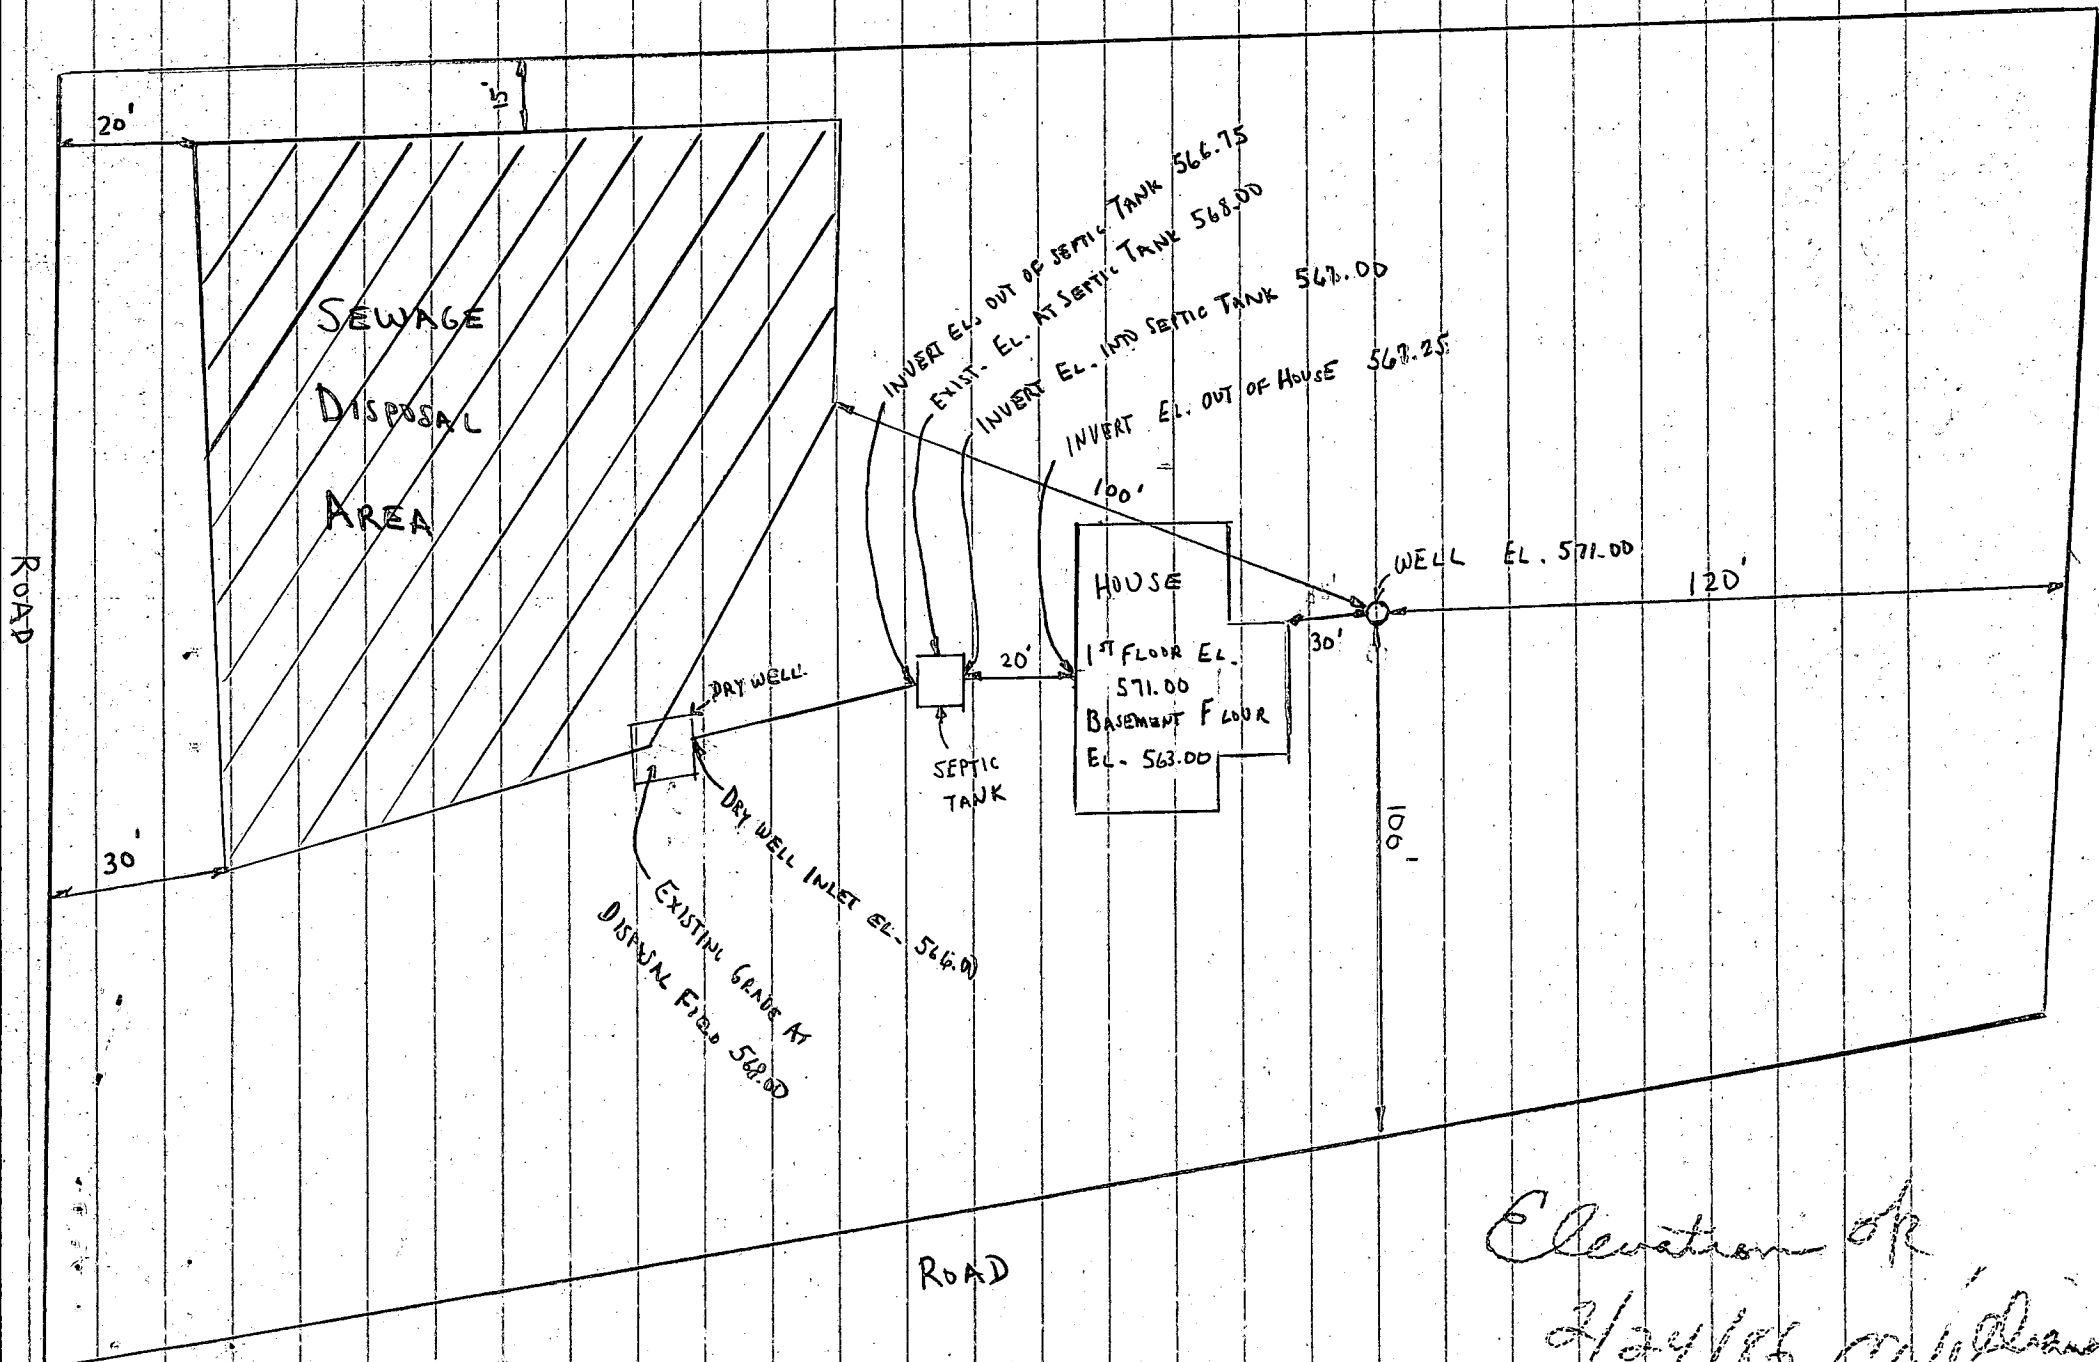 20'
15'
SEWAGE
DISPOSAL
AREA
ROAD
INVERT EL. OUT OF SEPTIC TANK 566.75
EXIST. EL. AT SEPTIC TANK 568.00
INVERT EL. INTO SEPTIC TANK 567.00
INVERT EL. OUT OF HOUSE 567.25
100'
HOUSE
1ST FLOOR EL.
571.00
BASEMENT FLOOR
EL. 563.00
WELL EL. 571.00
120'
30'
20'
DRY WELL
SEPTIC
TANK
DRY WELL INLET EL. 566.00
EXISTING GRADE AT
DISPOSAL FIELD 568.00
30'
100'
ROAD
Elevation ok
2/24/86